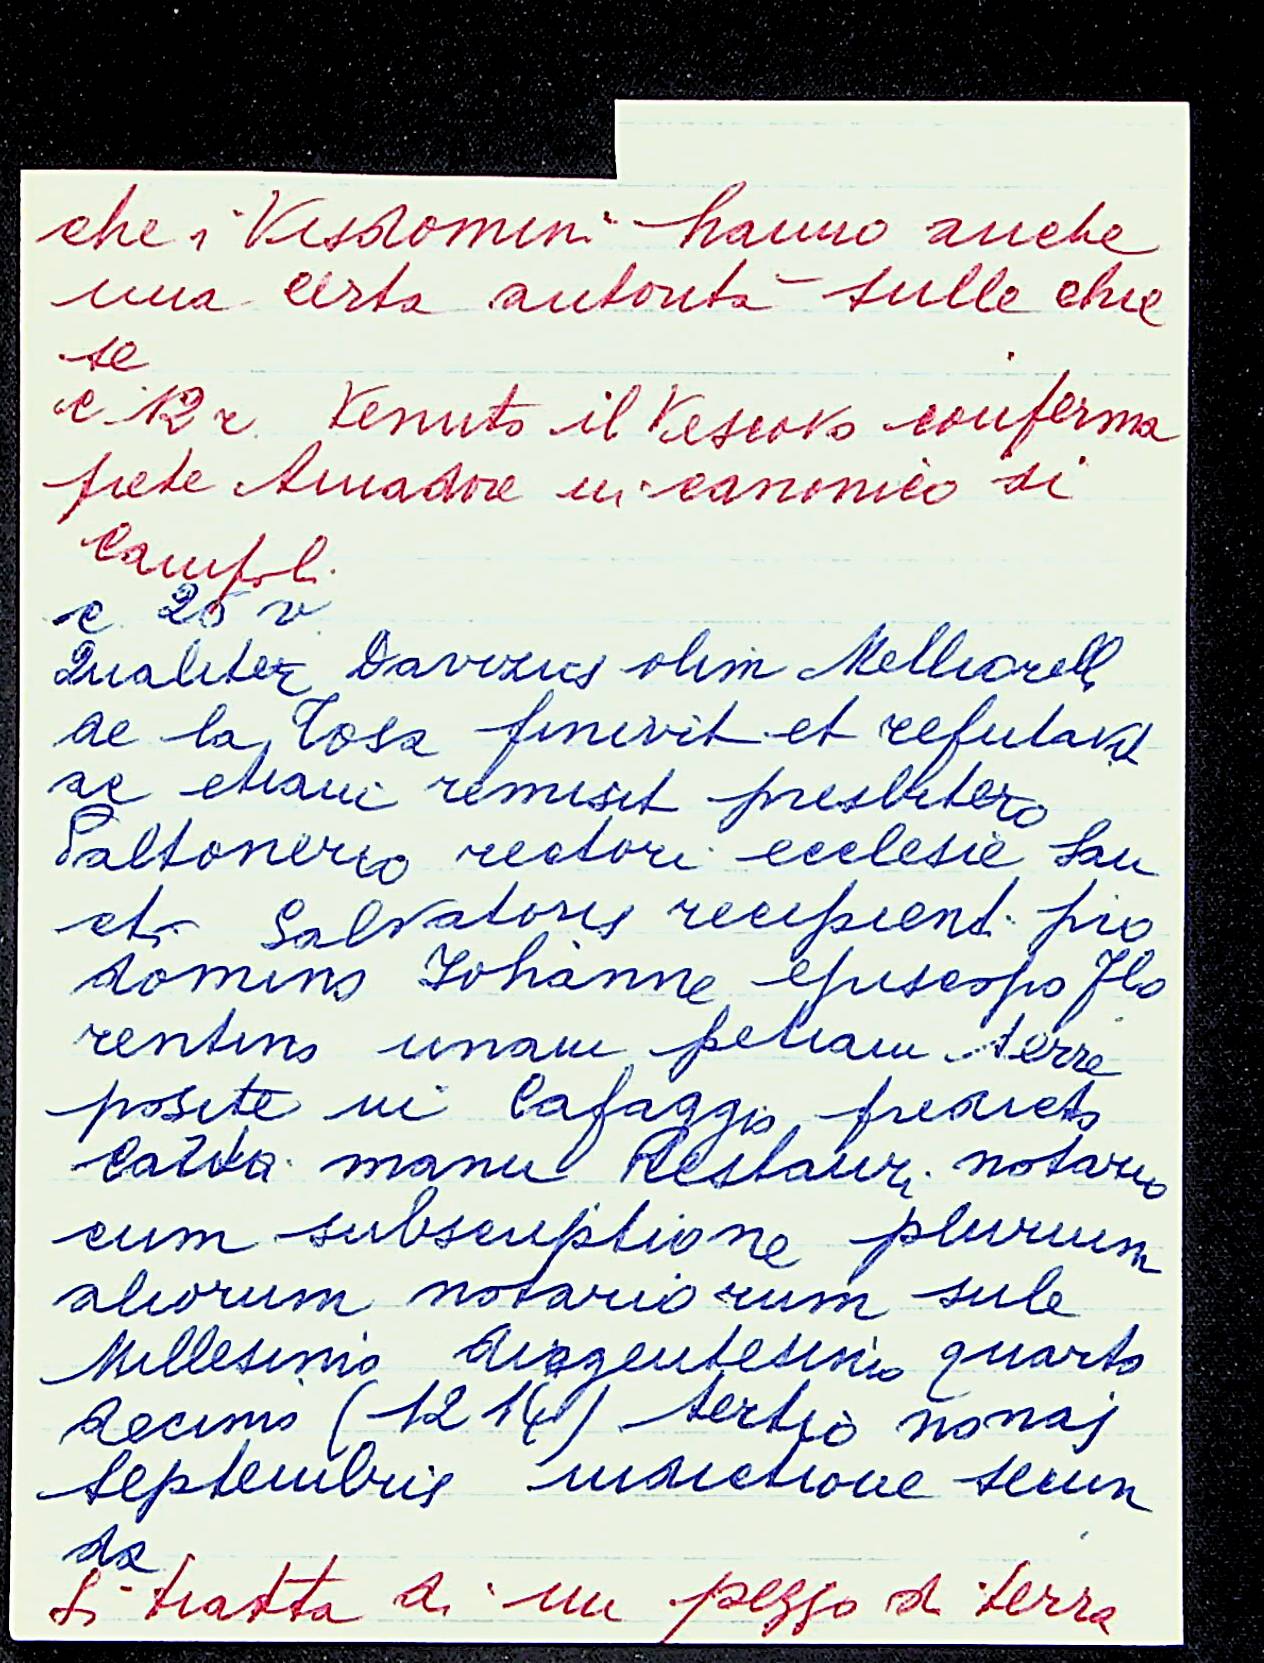 che i Visdomini hanno anche
una certa autorità sulle chie
se
c. 12 r. Venuto il Vescovo conferma
prete Amadore in canonico di
Campoli.
c. 25 v
Qualiter Davizus olim Melliorelli
de la Tosa finivit et refutavit
ac etiam remisit presbitero
Paltonerio rectori ecclesie San
cti Salvatoris recipienti pro
domino Johanne episcopo Flo
rentino unam petiam terre
posite in Cafaggio predicto
carta manu Restauri notario
cum subscriptione plurium
aliorum notariorum sub
Millesimo ducentesimo quarto
decimo (1214) tertio nonas
septembris indictione secun
da
Si tratta di un pezzo di terra